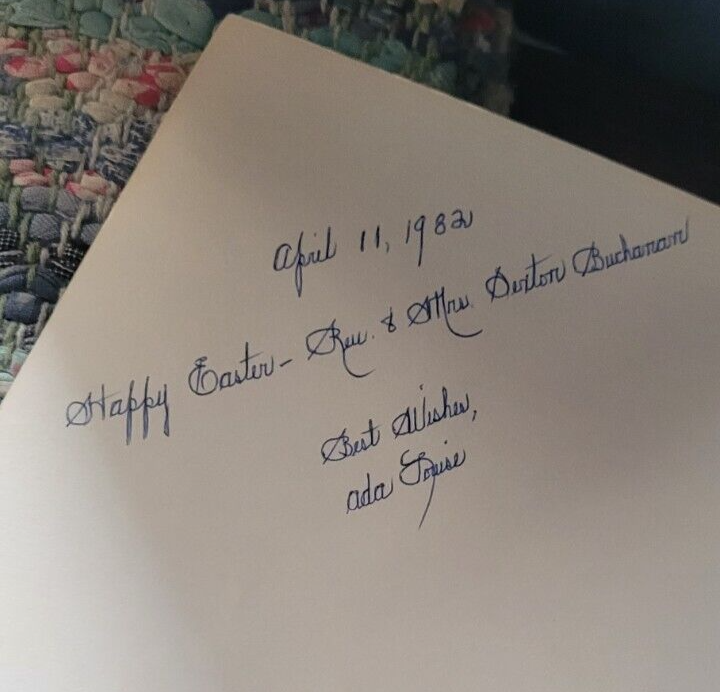 April 11, 1982
Happy Easter - Rev. & Mrs. Sexton Buchanan
Best Wishes,
Ada Louise